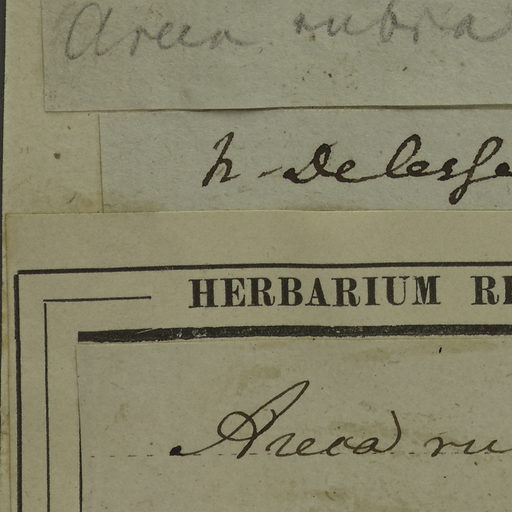 Areca rubra
h. Deless
HERBARIUM RE
Areca ru